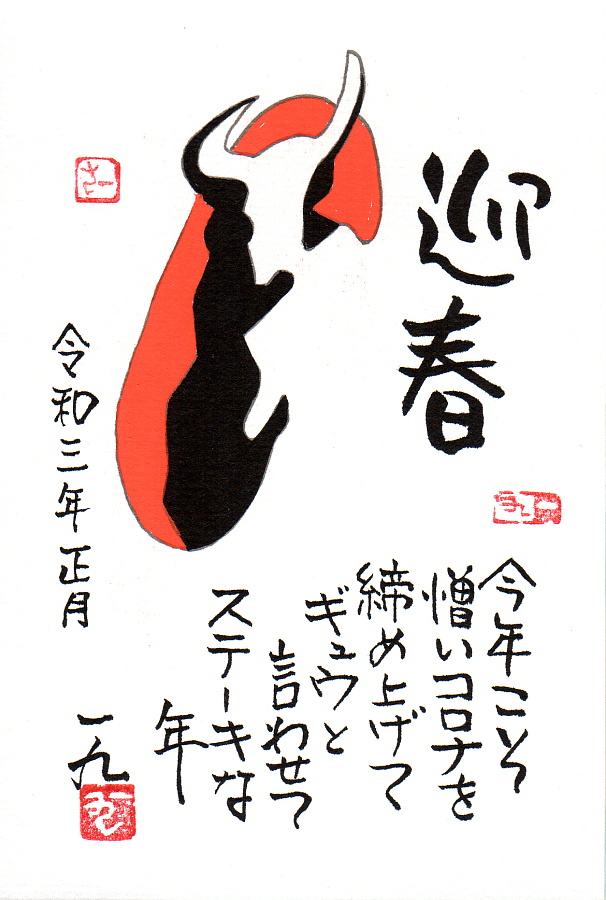 迎春
今年こそ
憎いコロナを
締め上げて
ギュウと
言わせて
ステーキな
年
令和三年正月
一九